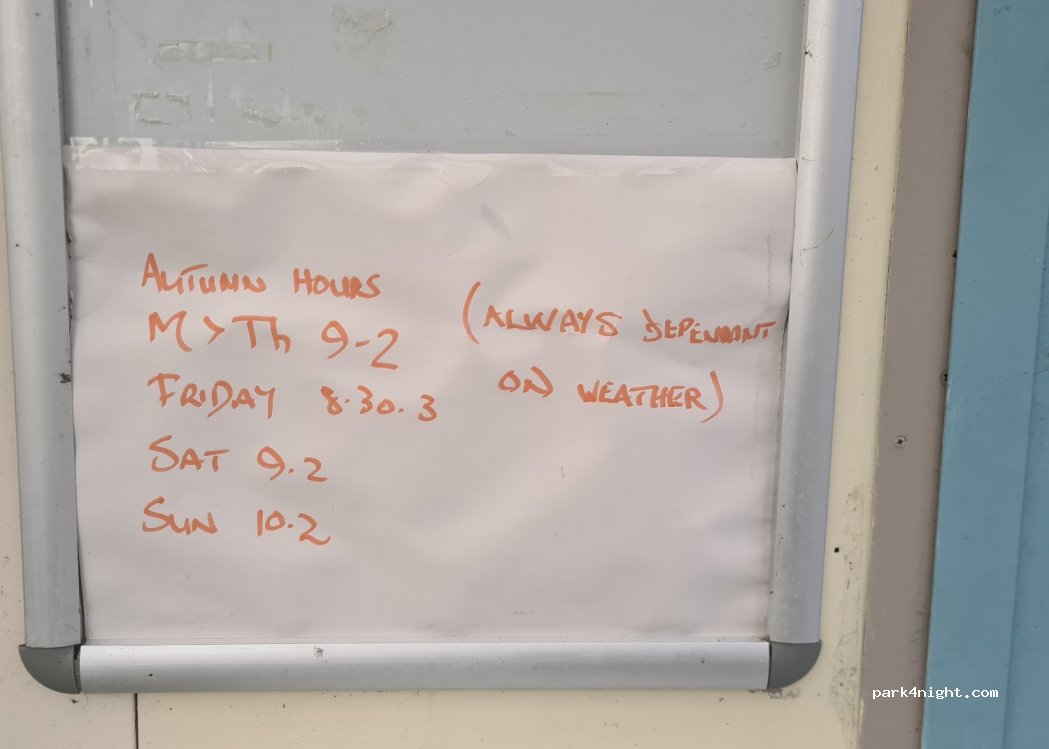 AUTUMN HOURS
M > Th 9-2
FRIDAY 8.30.3
SAT 9.2
SUN 10.2
(ALWAYS DEPENDANT
ON WEATHER)
park4night.com